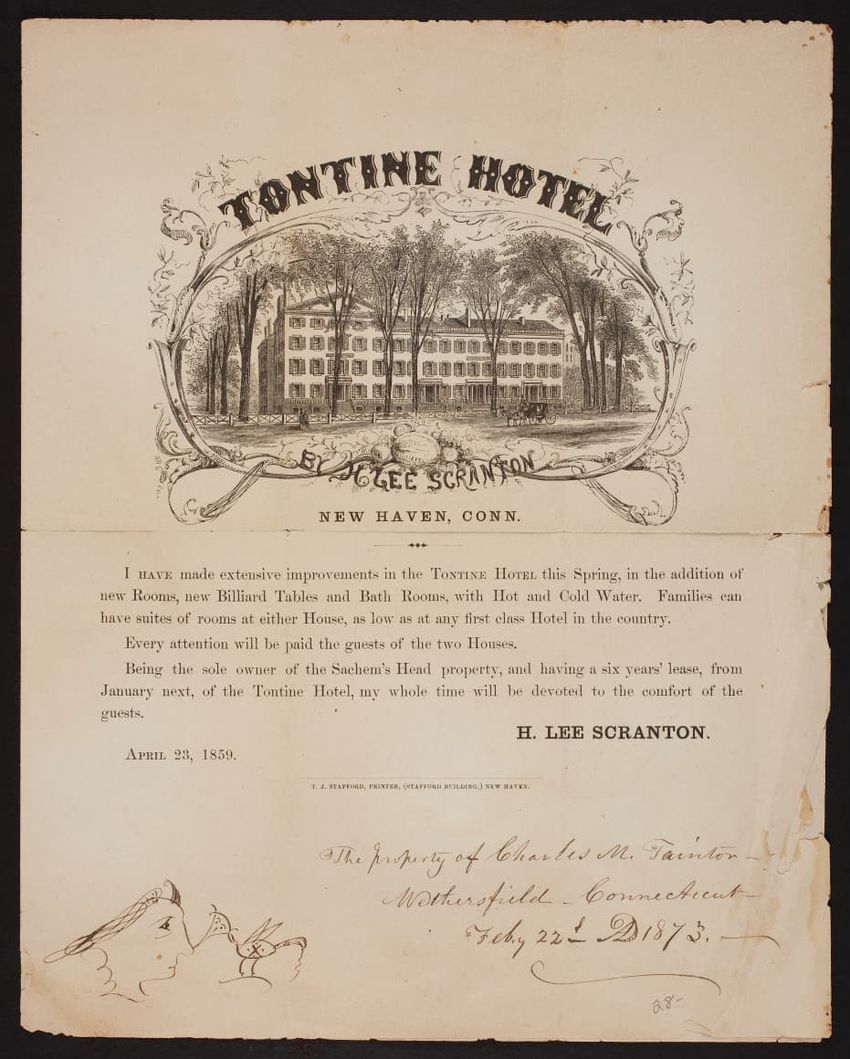 TONTINE HOTEL
BY H. LEE SCRANTON
NEW HAVEN, CONN.
I HAVE made extensive improvements in the TONTINE HOTEL this Spring, in the addition of
new Rooms, new Billiard Tables and Bath Rooms, with Hot and Cold Water. Families can
have suites of rooms at either House, as low as at any first class Hotel in the country.
Every attention will be paid the guests of the two Houses.
Being the sole owner of the Sachem's Head property, and having a six years' lease, from
January next, of the Tontine Hotel, my whole time will be devoted to the comfort of the
guests.
H. LEE SCRANTON.
APRIL 23, 1859.
T. J. STAFFORD, PRINTER, (STAFFORD BUILDING,) NEW HAVEN.
The property of Charles M. Taintor—
Wethersfield — Connecticut—
Feby 22d AD 1873.—
28-